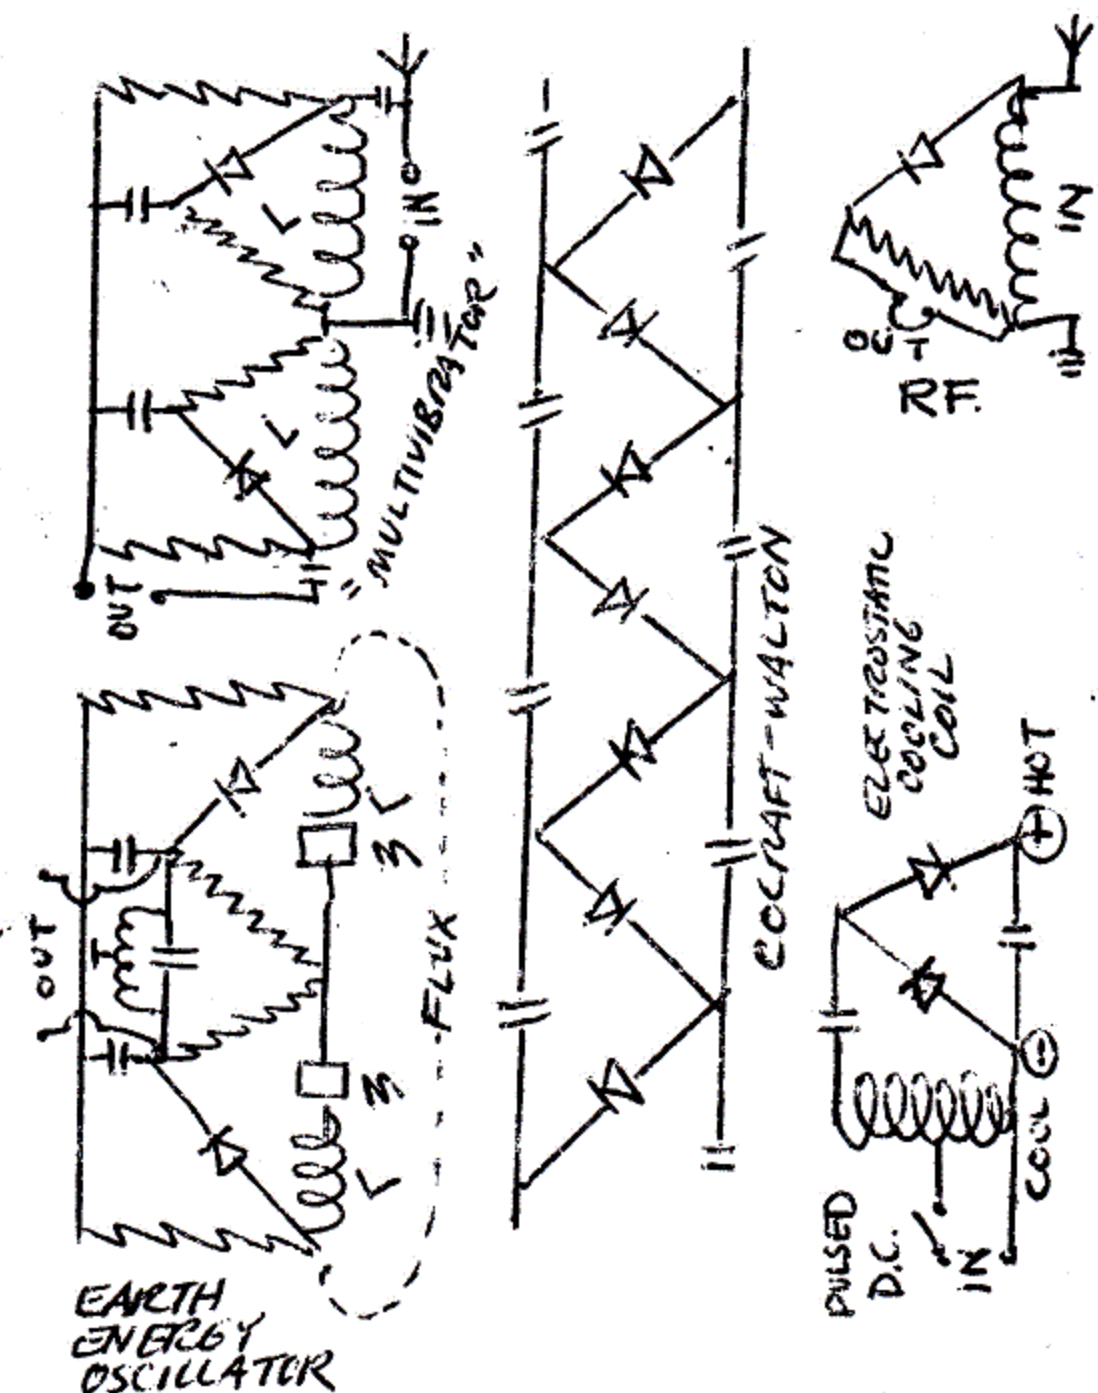 OUT
L
L
IN
"MULTIVIBRATOR"
IN
OUT
RF.
OUT
L
L
FLUX
EARTH
ENERGY
OSCILLATOR
COCRAFT-WALTON
ELECTROSTATIC
COOLING
COIL
+ HOT
- COOL
PULSED
D.C.
IN